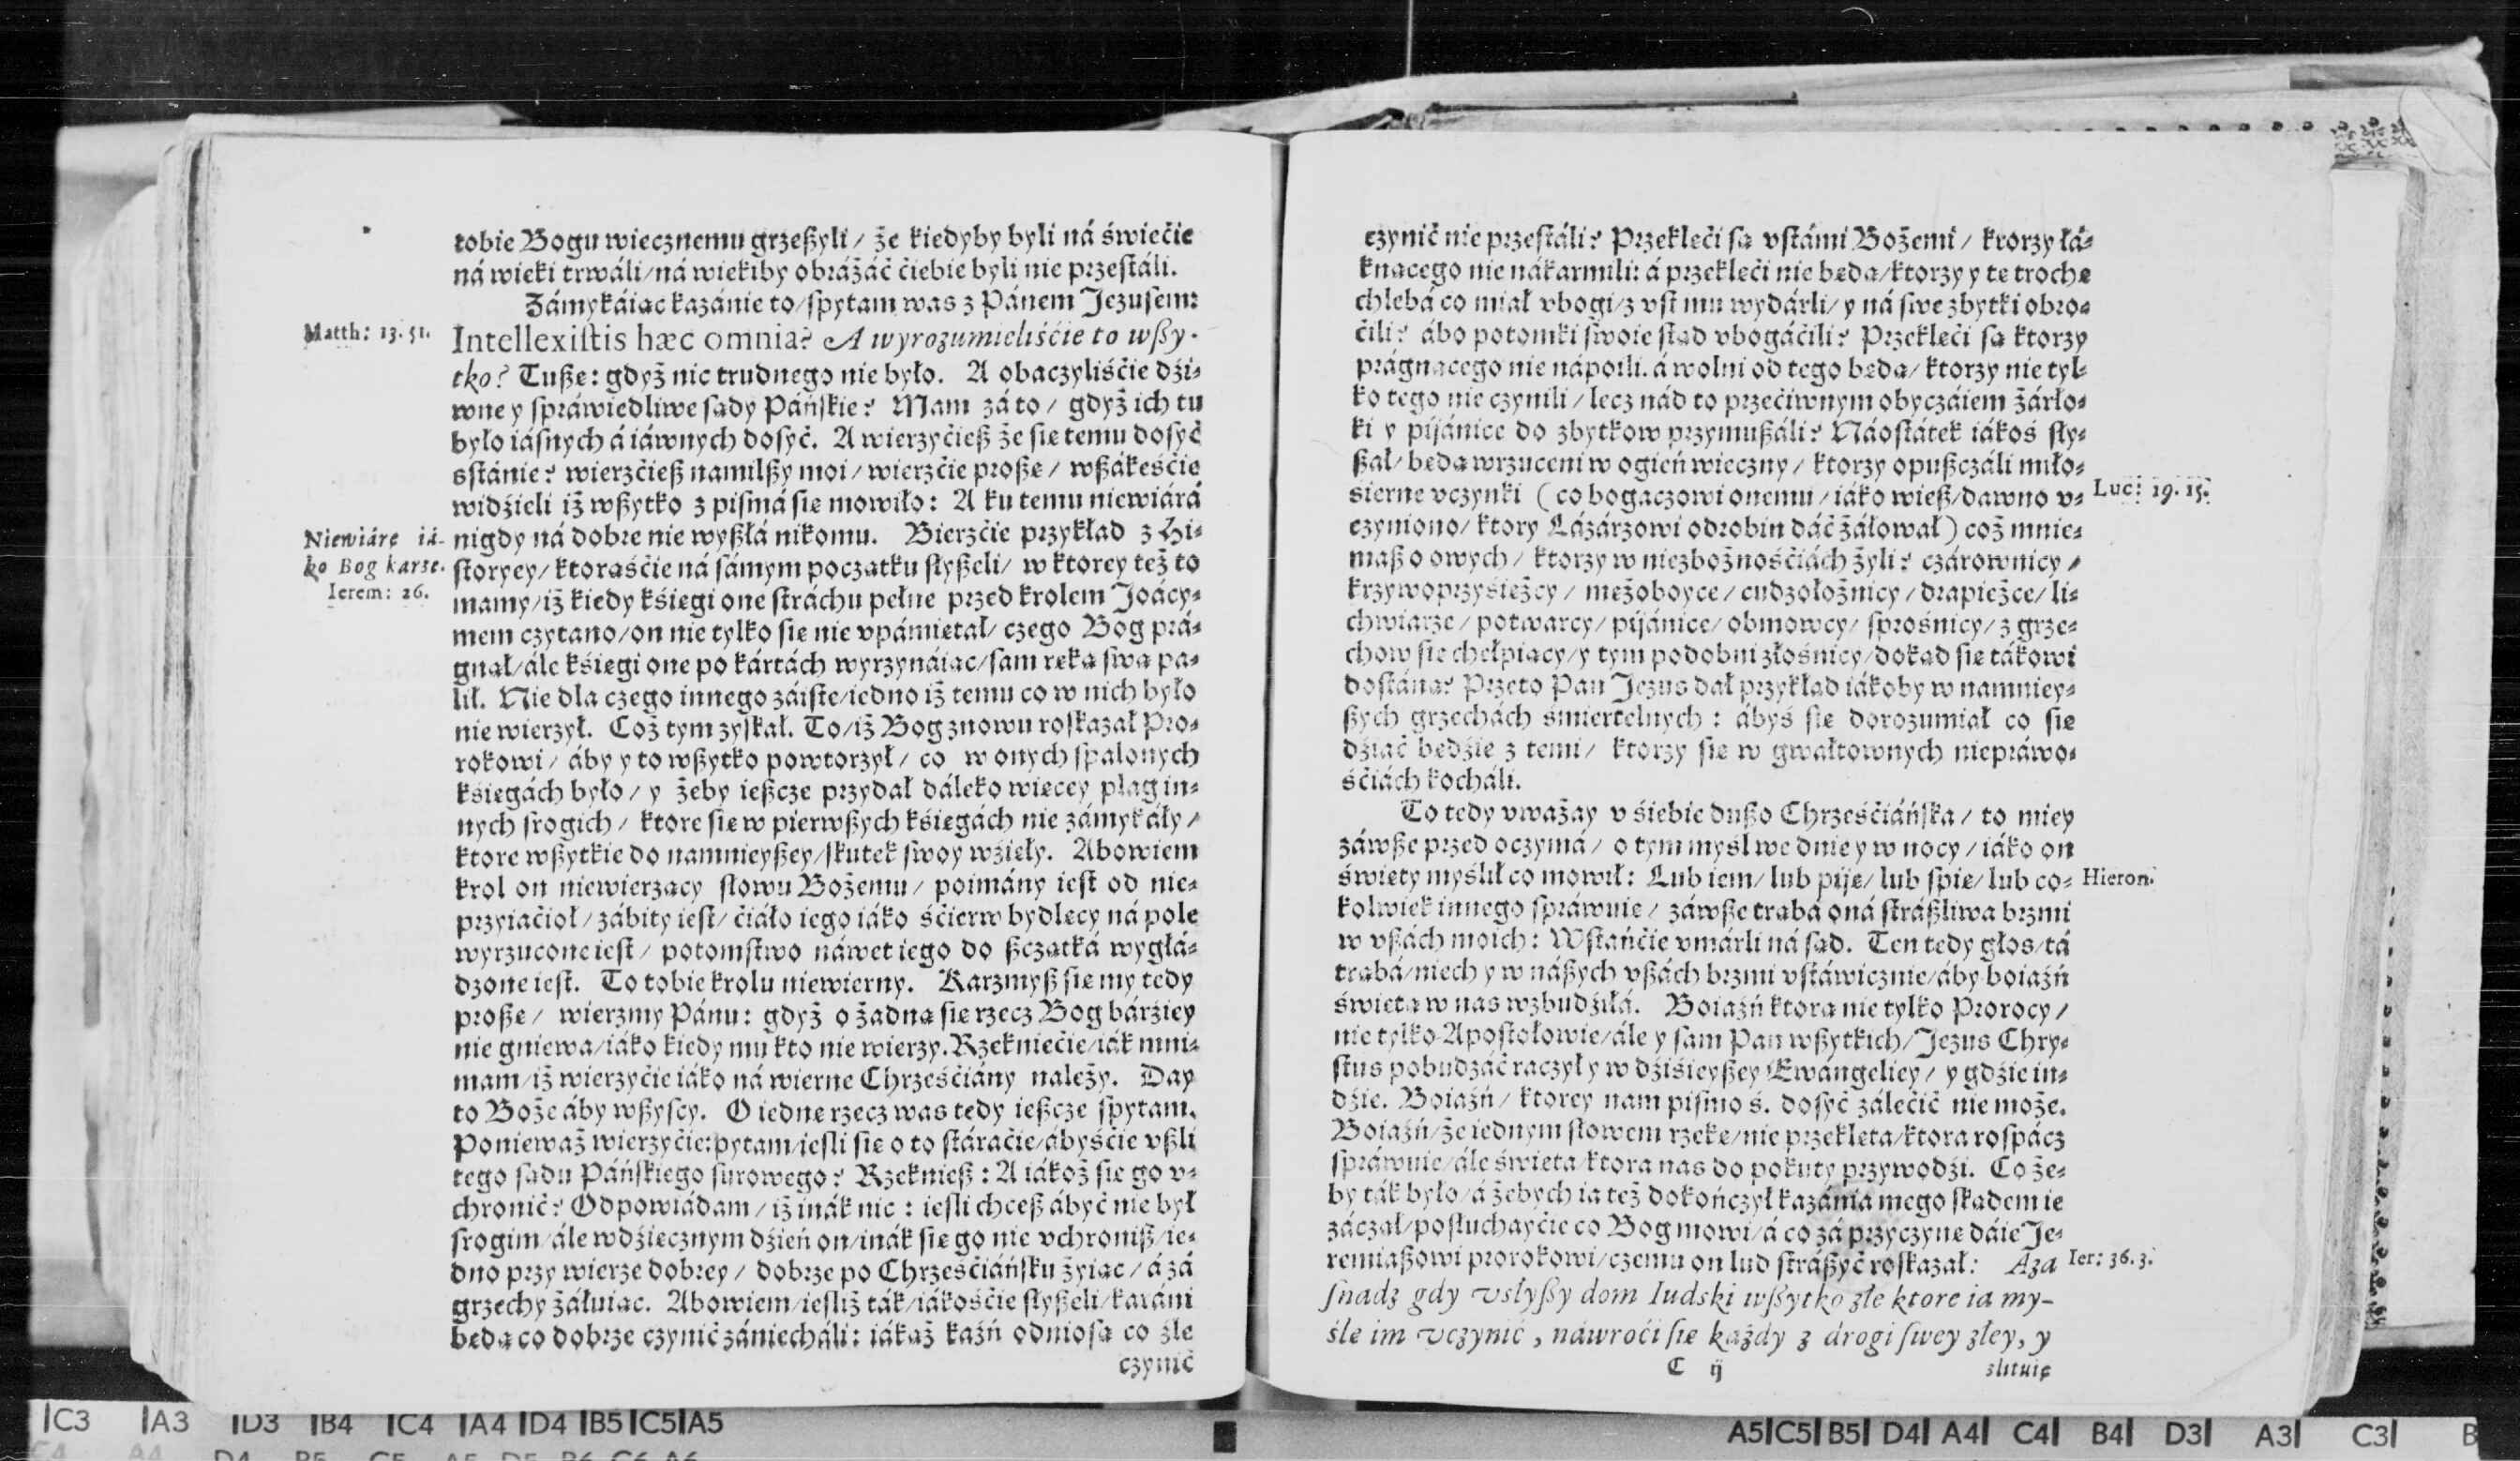 tobie Bogu wiecznemu grzeßyli / że kiedyby byli ná świećie
ná wieki trwáli / ná wiekiby obráżáć ćiebie byli nie przestáli.
Zámykáiąc kazánie to / spytam was z Pánem Jezusem:
Matth: 13. 51.
Intellexistis hæc omnia? A wyrozumieliśćie to wßy-
tko? Tußę: gdyż nic trudnego nie było. A obaczyliśćie dźi-
wne y spráwiedliwe sądy Páńskie? Mam zá to / gdyż ich tu
było iásnych á iáwnych dosyć. A wierzyćieß że się temu dosyć
sstánie? wierzćieß namilßy moi / wierzćie proßę / wßákeśćie
widźieli iż wßytko z pismá się mowiło: A ku temu niewiárá
Niewiárę iá-
ko Bog karze.
Ierem: 26.
nigdy ná dobre nie wyßłá nikomu. Bierzćie przykład z Hi-
storyey / ktorąśćie ná sámym początku słyßeli / w ktorey też to
mamy / iż kiedy kśięgi one stráchu pełne przed krolem Joácy-
mem czytano / on nie tylko się nie vpámiętał / czego Bog prá-
gnął / ále kśięgi one po kártách wyrzynáiąc / sam ręką swą pa-
lił. Nie dla czego innego záiste / iedno iż temu co w nich było
nie wierzył. Coż tym zyskał. To / iż Bog znowu roskazał Pro-
rokowi / áby y to wßytko powtorzył / co w onych spalonych
kśięgách było / y żeby ießcze przydał dáleko więcey plag in-
nych srogich / ktore się w pierwßych kśięgách nie zámykáły /
ktore wßytkie do namnieyßey / skutek swoy wźięły. Abowiem
krol on niewierzący słowu Bożemu / poimány iest od nie-
przyiaćioł / zábity iest / ćiáło iego iáko śćierw bydlęcy ná pole
wyrzucone iest / potomstwo náwet iego do ßczątká wygłá-
dzone iest. To tobie krolu niewierny. Karzmyß się my tedy
proßę / wierzmy Pánu: gdyż o żadną się rzecz Bog bárźiey
nie gniewa / iáko kiedy mu kto nie wierzy. Rzekniećie / iák mni-
mam / iż wierzyćie iáko ná wierne Chrześćiány należy. Day
to Boże áby wßyscy. O iednę rzecz was tedy ießcze spytam.
Ponieważ wierzyćie: pytam / iesli się o to stáraćie / ábyśćie vßli
tego sądu Páńskiego surowego? Rzeknieß: A iákoż się go v-
chronić? Odpowiádam / iż inák nic: iesli chceß ábyć nie był
srogim / ále wdźięcznym dźień on / inák się go nie vchroniß / ie-
dno przy wierze dobrey / dobrze po Chrześćiáńsku żyiąc / á zá
grzechy żáłuiąc. Abowiem / iesliż ták / iákośćie słyßeli / karáni
będą co dobrze czynić zániecháli: iákąż kaźń odniosą co źle
czynić
czynić nie przestáli? Przeklęći są vstámi Bożemi / ktorzy łá-
knącego nie nákarmili: á przeklęći nie będą / ktorzy y tę trochę
chlebá co miał vbogi / z vst mu wydárli / y ná swe zbytki obro-
ćili? ábo potomki swoie stąd vbogáćili? Przeklęći są ktorzy
prágnącego nie nápoili. á wolni od tego będą / ktorzy nie tyl-
ko tego nie czynili / lecz nád to przećiwnym obyczáiem żárło-
ki y pijánice do zbytkow przymußáli? Náostátek iákoś sły-
ßał / będą wrzuceni w ogień wieczny / ktorzy opußczáli miło-
sierne vczynki (co bogaczowi onemu / iáko wieß / dawno v-
Luc: 19. 15.
czyniono / ktory Lázárzowi odrobin dáć żáłował) coż mnie-
maß o owych / ktorzy w niezbożnośćiách żyli? czárownicy /
krzywoprzyśiężcy / mężoboyce / cudzołożnicy / drapieżce / li-
chwiarze / potwarcy / pijánice / obmowcy / sprośnicy / z grze-
chow się chełpiący / y tym podobni złośnicy / dokąd się tákowi
dostáną? Przeto Pan Jezus dał przykład iákoby w namniey-
ßych grzechách śmiertelnych: ábyś się dorozumiał co się
dźiać będźie z temi / ktorzy się w gwałtownych niepráwo-
śćiách kocháli.
To tedy vważay v śiebie dußo Chrześćiáńska / to miey
záwße przed oczymá / o tym myśl we dnie y w nocy / iáko on
święty myślił co mowił: Lub iem / lub piję / lub spię / lub co-
Hieron.
kolwiek innego spráwuię / záwße trąbá oná stráßliwa brzmi
w vßách moich: Wstańćie vmárli ná sąd. Ten tedy głos / tá
trąbá / niech y w náßych vßách brzmi vstáwicznie / áby boiaźń
świętą w nas wzbudźiłá. Boiaźń ktorą nie tylko Prorocy /
nie tylko Apostołowie / ále y sam Pan wßytkich / Jezus Chry-
stus pobudzáć raczył y w dźiśieyßey Ewángeliey / y gdźie in-
dźie. Boiaźń / ktorey nam pismo ś. dosyć zálećić nie może.
Boiaźń / że iednym słowem rzekę / nie przeklęta / ktora rospácz
spráwuie / ále święta / ktora nas do pokuty przywodźi. Co że-
by ták było / á żebych ia też dokończył kazánia mego skądem ie
záczął / posłuchayćie co Bog mowi / á co zá przyczynę dáie Je-
remiaßowi prorokowi / czemu on lud stráßyć roskazał: Aza
Ier: 36. 3.
snadz gdy vslyßy dom Iudski wßytko złe ktore ia my-
śle im vczynić, náwroći się każdy z drogi swey złey, y
C ij
zlituię
C3 A3 D3 B4 C4 A4 D4 B5 C5 A5
A5 C5 B5 D4 A4 C4 B4 D3 A3 C3 B